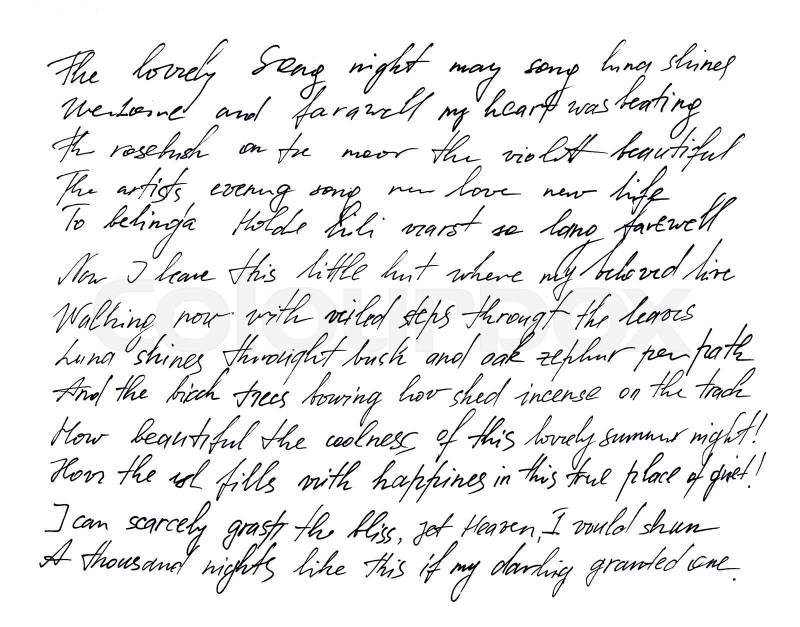 The lovely Song night may song luna shines
Welcome and farawell my heart was beating
Th rosebush on the moor the violett beautiful
The artists evening song new love new life
To belinda Holde Lili warst so lang farewell
Now I leave this little hut where my beloved live
Walking now with veiled steps througt the leaves
Luna shines throught bush and oak zephur per path
And the birch trees bowing how shed incense on the track
How beautiful the coolness of this lovely summer night!
How the fills with happines in this true place of quiet!
I can scarcely grasp the bliss, yet Heaven, I would shun
A thousand nights like this if my darling granted one.
colourbox